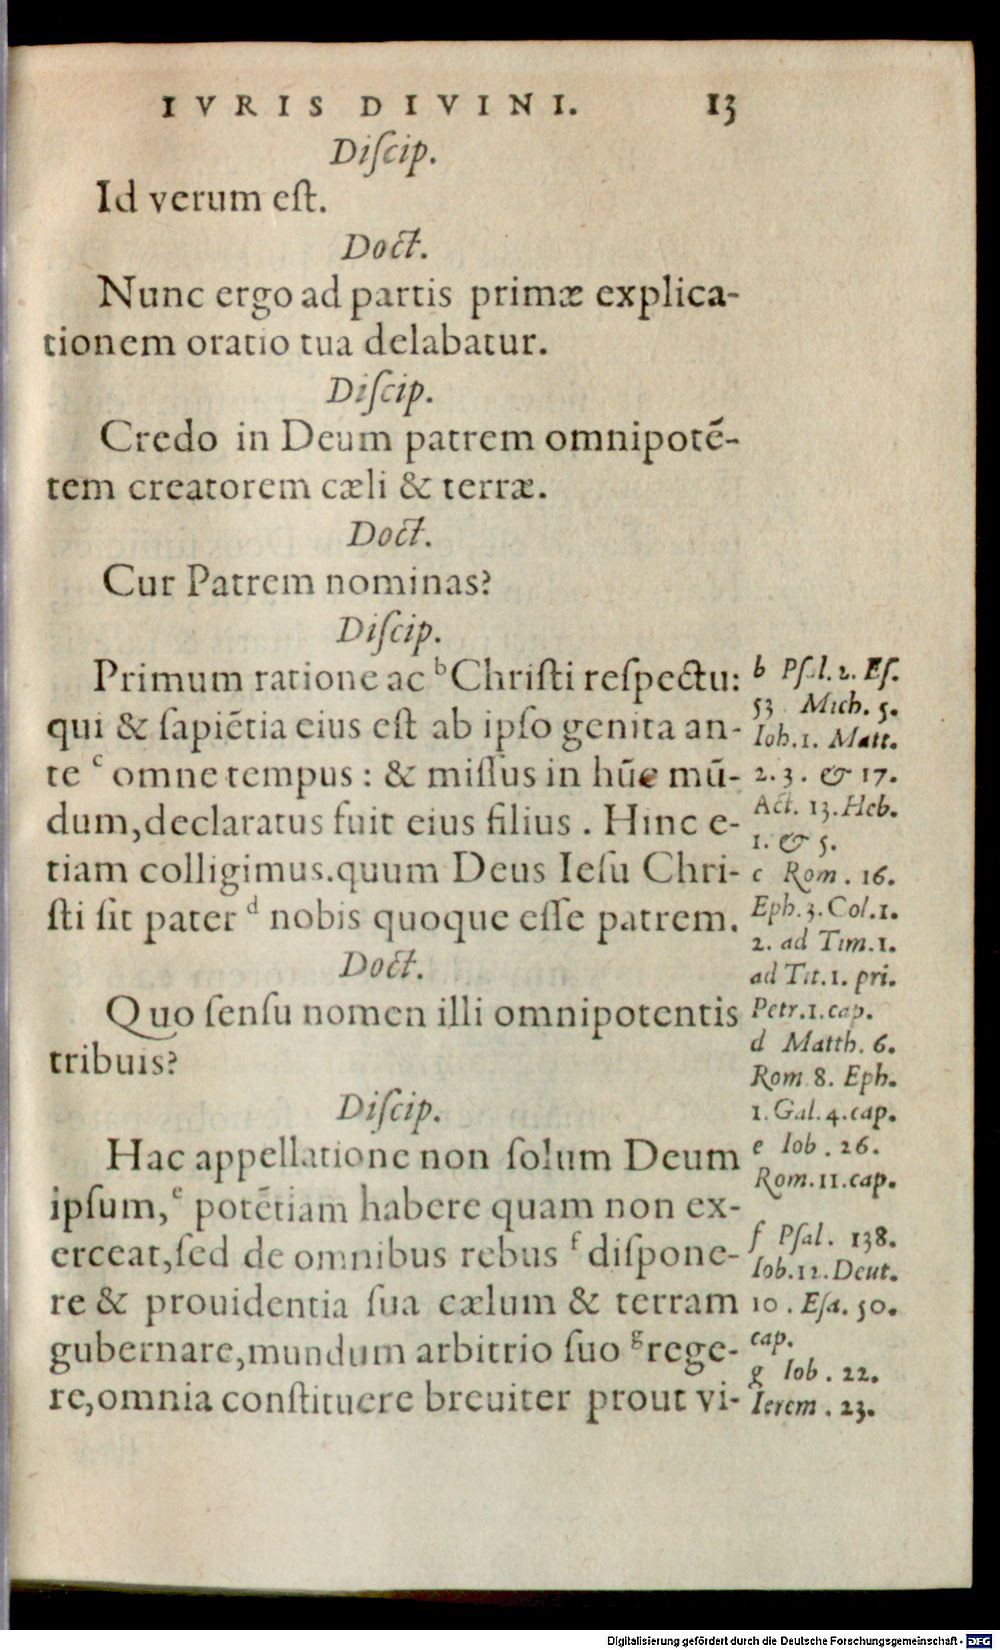 IVRIS DIVINI. 13
Diſcip.
Id verum eſt.
Doct.
Nunc ergo ad partis primæ explica-
tionem oratio tua delabatur.
Diſcip.
Credo in Deum patrem omnipotē-
tem creatorem cæli & terræ.
Doct.
Cur Patrem nominas?
Diſcip.
Primum ratione ac ᵇChriſti reſpectu:
qui & ſapiētia eius eſt ab ipſo genita an-
te ᶜ omne tempus : & miſſus in hūc mū-
dum,declaratus fuit eius filius . Hinc e-
tiam colligimus.quum Deus Ieſu Chri-
ſti ſit pater ᵈ nobis quoque eſſe patrem.
Doct.
Quo ſenſu nomen illi omnipotentis
tribuis?
Diſcip.
Hac appellatione non ſolum Deum
ipſum,ᵉ potētiam habere quam non ex-
erceat,ſed de omnibus rebus ᶠ diſpone-
re & prouidentia ſua cælum & terram
gubernare,mundum arbitrio ſuo ᵍrege-
re,omnia conſtituere breuiter prout vi-
b Pſal. 2. Eſ.
53 Mich. 5.
Ioh.1. Matt.
2. 3. & 17.
Act. 13.Heb.
1. & 5.
c Rom. 16.
Eph.3.Col.1.
2. ad Tim.1.
ad Tit.1. pri.
Petr.1.cap.
d Matth. 6.
Rom 8. Eph.
1.Gal.4.cap.
e Iob . 26.
Rom.11.cap.
f Pſal. 138.
Iob.12.Deut.
10 . Eſa. 50.
cap.
g Iob . 22.
Ierem . 23.
Digitalisierung gefördert durch die Deutsche Forschungsgemeinschaft - DFG